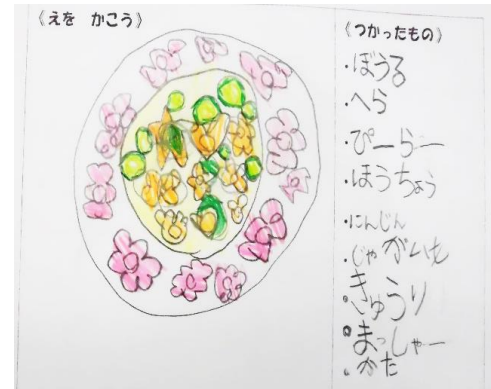 《えを かこう》
《つかったもの》
・ぼうる
・へら
・ぴーらー
・ほうちょう
・にんじん
・じゃがいも
・きゅうり
・まっしゃー
・かた